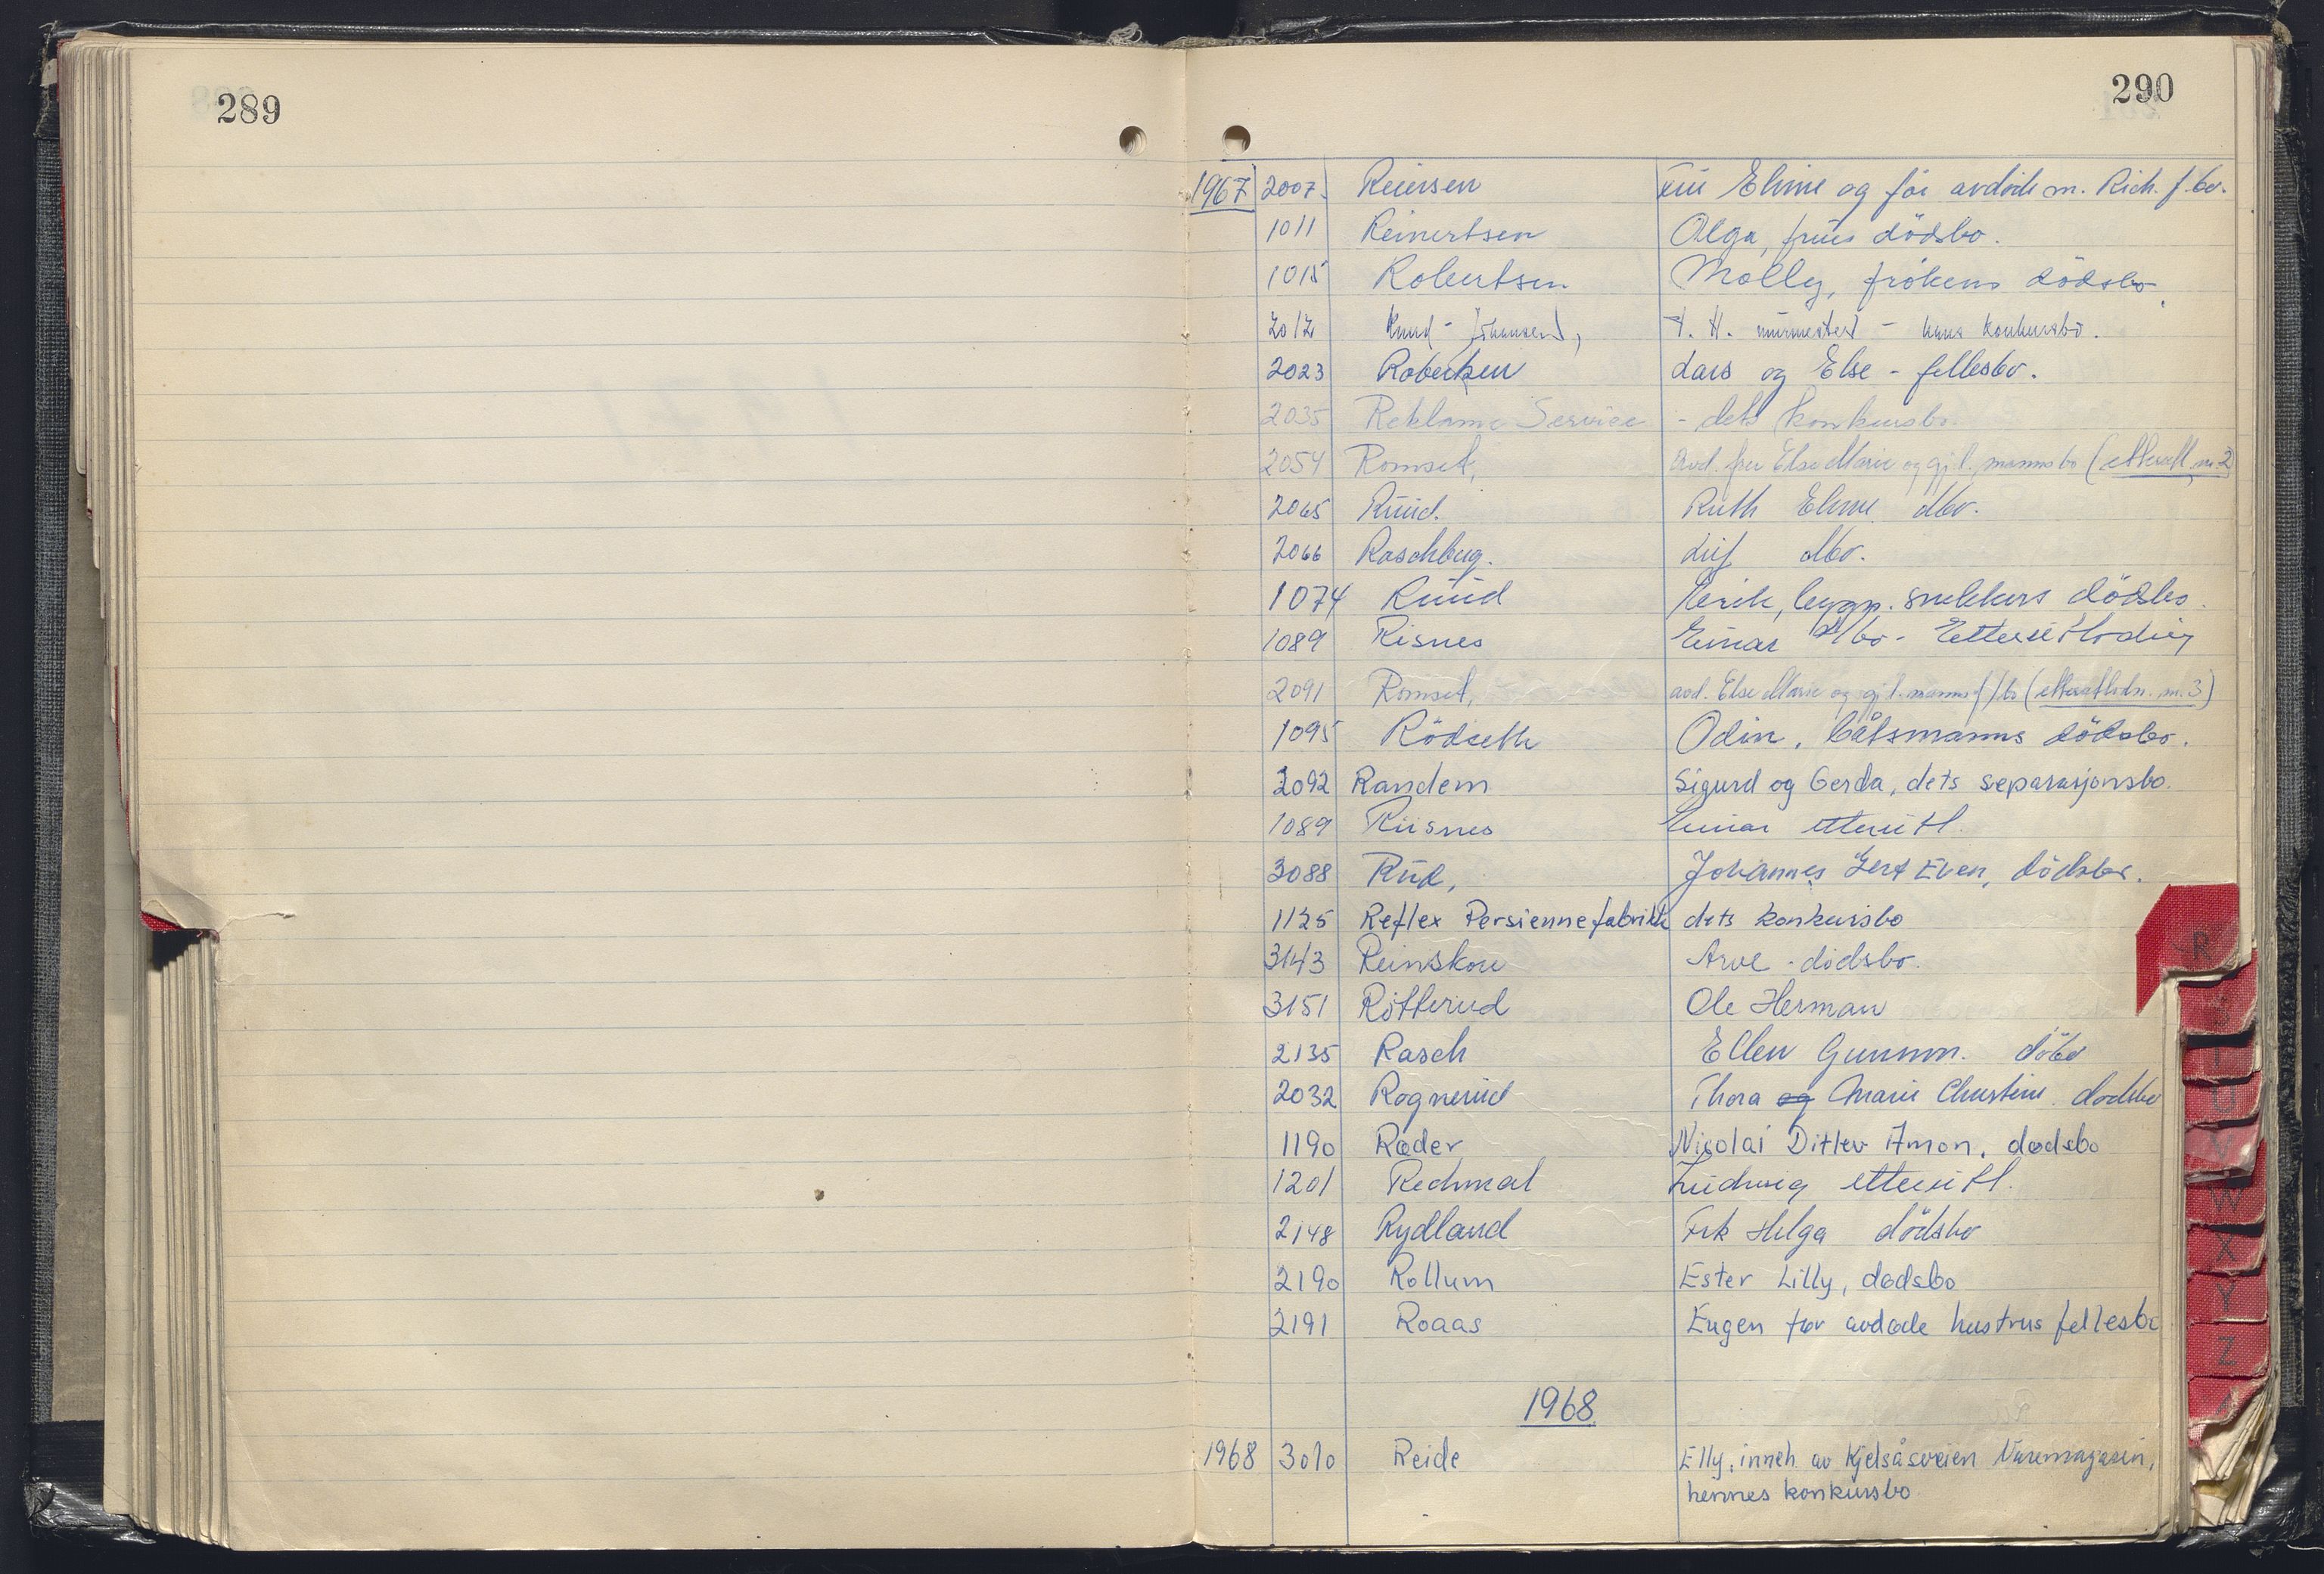 289
290
1967 2007. Reiersen fru Eline og før avdøde m. Rich. f.bo.
1011 Reinertsen Olga, frus dödsbo.
1015 Robertsen Molly, frökens dödsbo
2012 Knud-Johansen, T. H. murmester - hans konkursbo.
2023 Robertsen Lars og Else - fellesbo.
2035 Reklame Service - dets konkursbo.
2054 Romset, avd. fru Else Marie og gj.l. manns bo (ettersetl. nr. 2)
2065 Ruud. Ruth Eline dbo.
2066 Raschbug. Leif dbo.
1074 Ruud Henrik, bygn. snekkers dödsbo.
1089 Risnes Einar d/bo - Ettersitlodning
2091 Romset, avd. Else Marie og gj.l. manns f/bo (ettersetlodn. nr. 3)
1095 Rödseth Odin, båtsmanns dödsbo.
2092 Randem Sigurd og Gerda, dets separasjonsbo.
1089 Riisnes Einar ettersitl.
3088 Rud, Johannes Gert Even, dödsbo.
1125 Reflex Persiennefabrikk dets konkursbo
3143 Reinskou Arve - dödsbo.
3151 Rotterud Ole Herman
2135 Rasch Ellen Gunnm. döbo
2032 Rognerud Thora og Marie Christine dødsbo
1190 Ræder Nicolai Ditlev Amon, dødsbo
1201 Rechmal Ludwig ettersitl.
2148 Rydland Frk Helga dödsbo
2190 Rollum Ester Lilly, dødsbo
2191 Roaas Eugen før avdøde hustrus fellesbo
1968
1968 3010 Reide Elly, inneh. av Kjelsåsveien Varemagasin,
hennes konkursbo
R
T
U
V
W
X
Y
Z